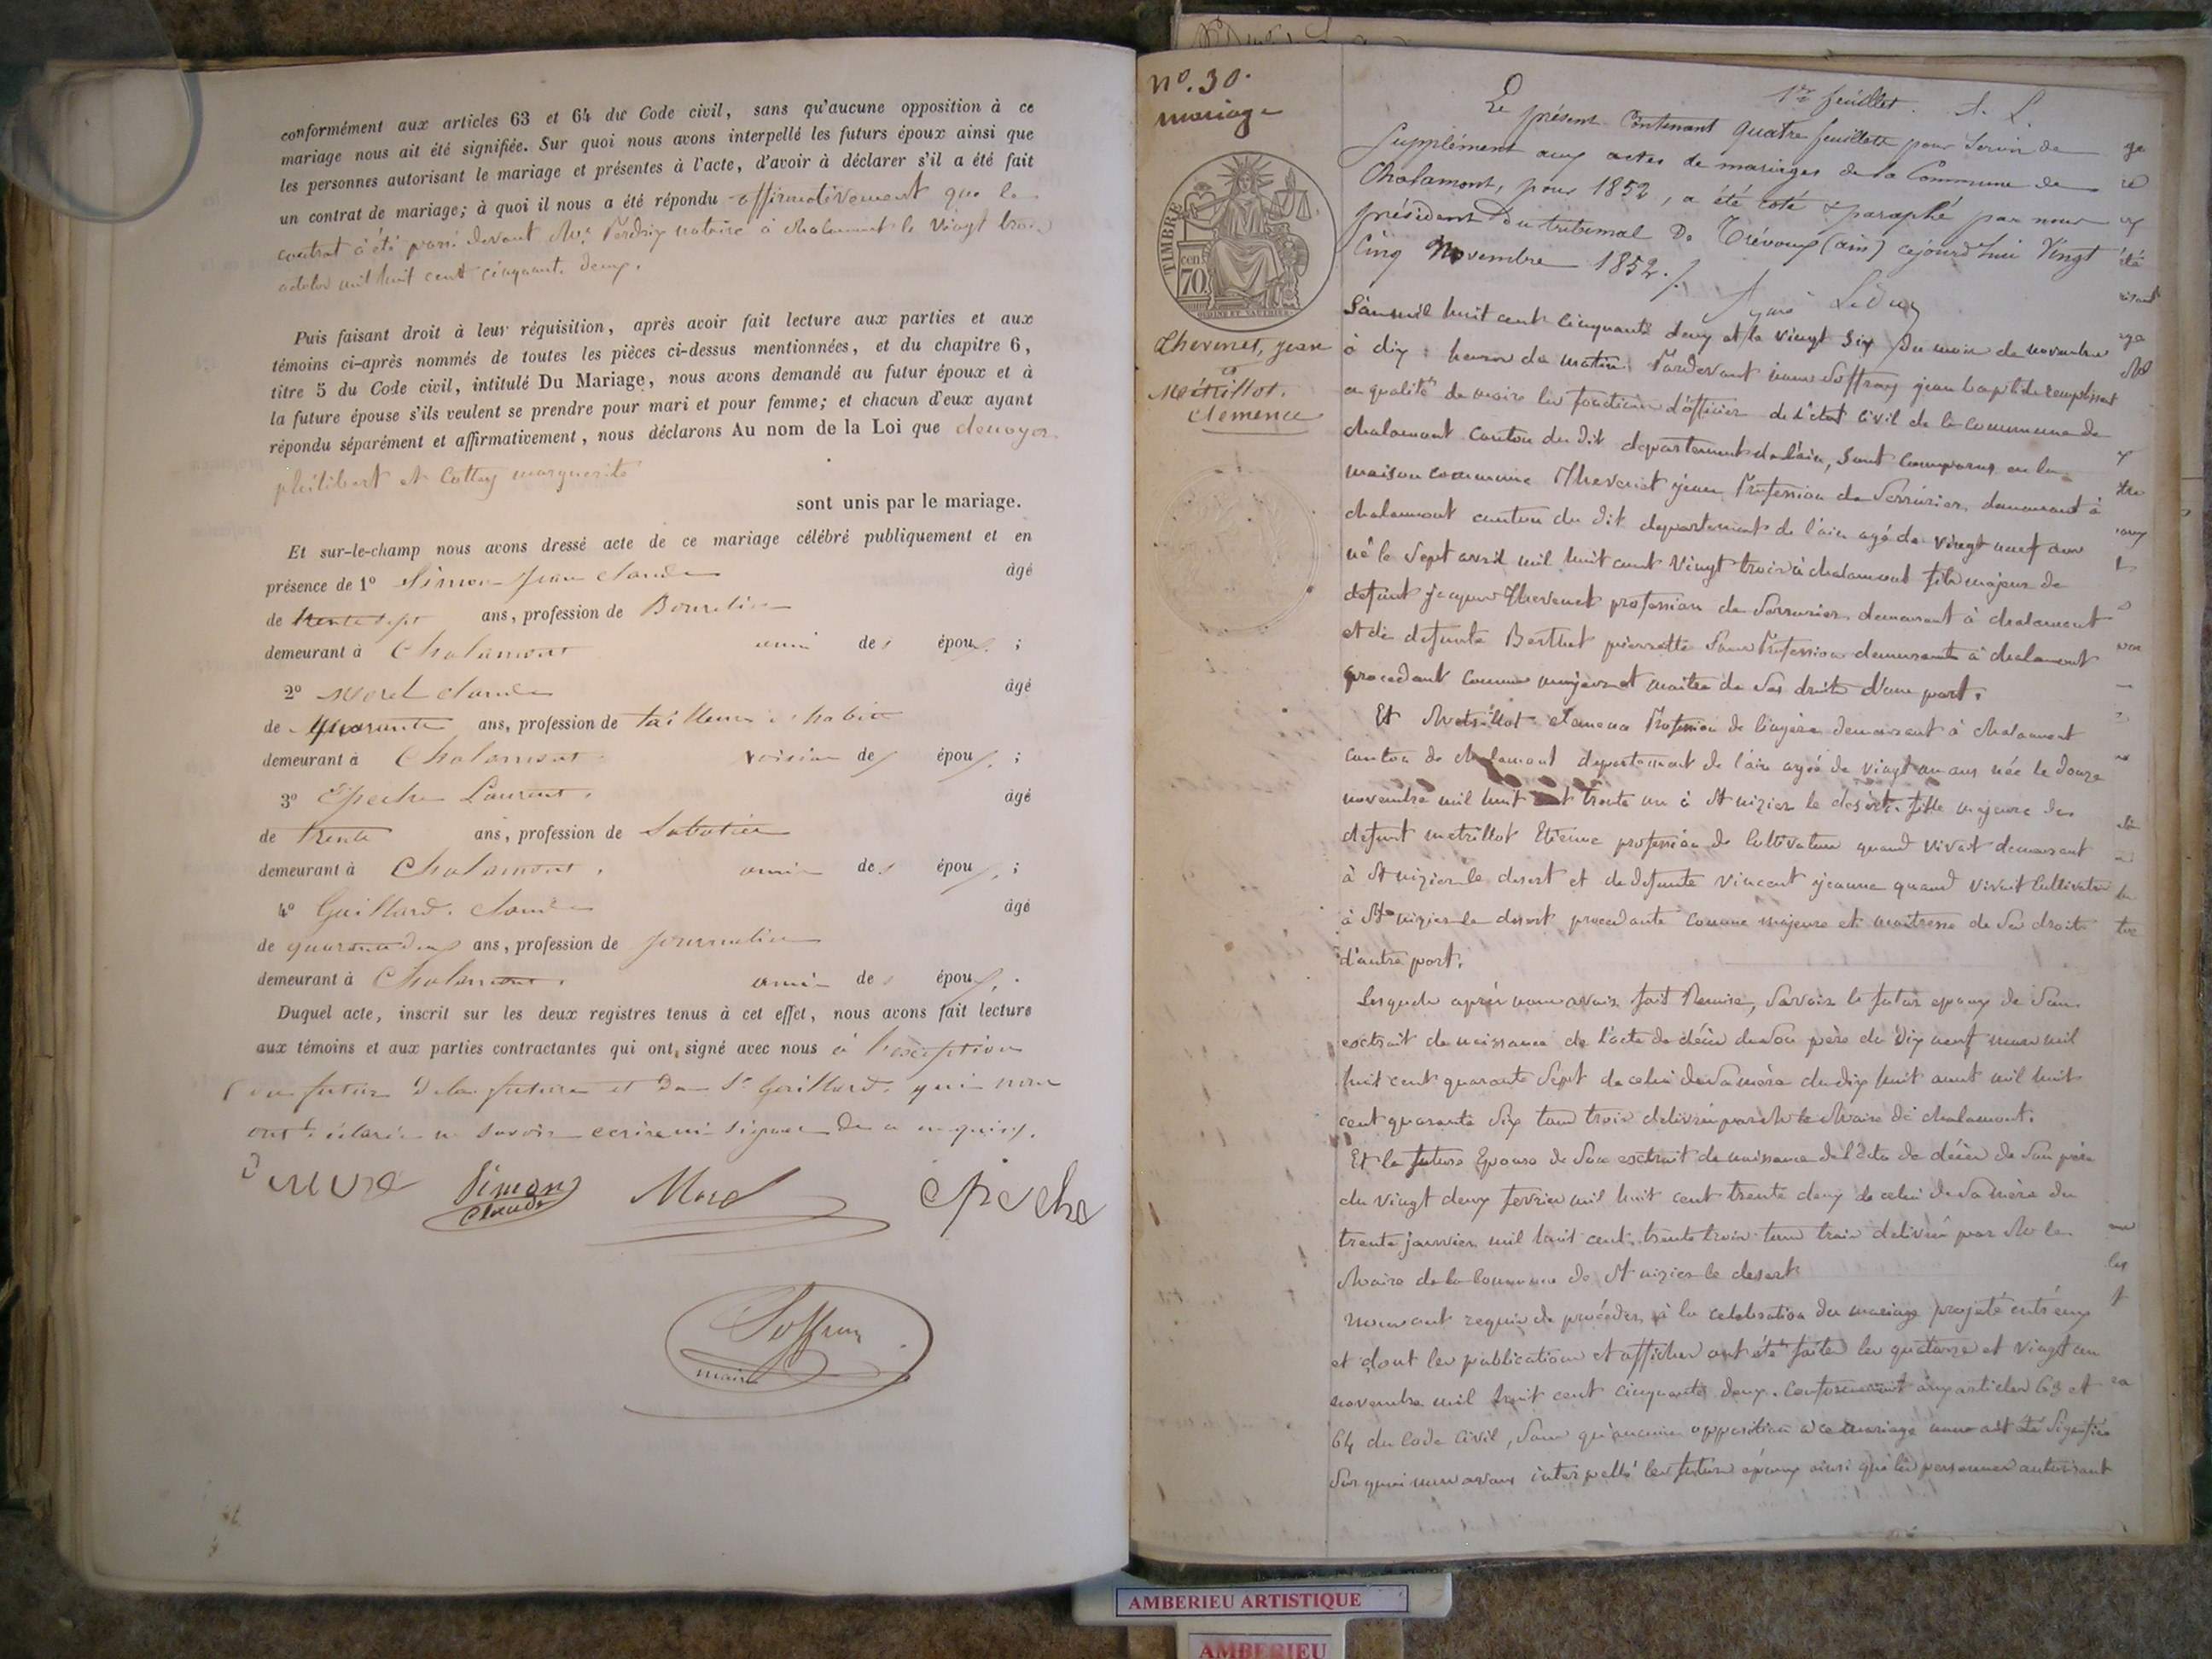 conformément aux articles 63 et 64 du Code civil, sans qu'aucune opposition à ce
mariage nous ait été signifiée. Sur quoi nous avons interpellé les futurs époux ainsi que
les personnes autorisant le mariage et présentes à l'acte, d'avoir à déclarer s'il a été fait
un contrat de mariage; à quoi il nous a été répondu affirmativement que le
contrat à été passé devant Me Perdrix notaire à chalamont le vingt trois
octobre mil huit cent cinquante deux.
Puis faisant droit à leur réquisition, après avoir fait lecture aux parties et aux
témoins ci-après nommés de toutes les pièces ci-dessus mentionnées, et du chapitre 6,
titre 5 du Code civil, intitulé Du Mariage, nous avons demandé au futur époux et à
la future épouse s'ils veulent se prendre pour mari et pour femme; et chacun d'eux ayant
répondu séparément et affirmativement, nous déclarons Au nom de la Loi que
philibert et Cottey marguerite
sont unis par le mariage.
Et sur-le-champ nous avons dressé acte de ce mariage célébré publiquement et en
présence de 1o Simon Jean claude âgé
de trente sept ans, profession de Bourrelier
demeurant à Chalamont ami des époux ;
2o Morel claude âgé
de quarante ans, profession de tailleur d'habits
demeurant à Chalamont voisin des époux ;
3o Epeche Laurent. âgé
de trente ans, profession de Sabotier
demeurant à Chalamont. ami des époux ;
4o Gaillard. claude âgé
de quarante deux ans, profession de journalier
demeurant à Chalamont. ami des époux.
Duquel acte, inscrit sur les deux registres tenus à cet effet, nous avons fait lecture
aux témoins et aux parties contractantes qui ont signé avec nous à l'exception
du futur de la future et du Sr Gaillard. qui nous
ont déclaré ne savoir ecrire ni signer de ce enquis.
Simon
Claude
Morel
epeche
Soffray
maire
no. 30.
mariage
TIMBRE
cen
70
Thevenet, jean
à
Métrillot.
Clemence
1er feuillet. A. L.
Le présent Contenant quatre feuillets pour servir de
Supplément aux actes de mariages de la Commune de
Chalamont, pour 1852, a été coté & paraphé par nous
président du tribunal de Trévoux (ain) cejourd'hui Vingt
Cinq Novembre 1852./.
Signé
L'an mil huit cent cinquante deux et le vingt six du mois de novembre
à dix heures du matin Pardevant nous Soffray jean baptiste remplissant
en qualité de maire les fonctions d'officier de l'état civil de la commune de
chalamont canton du dit departement de l'ain, sont comparus en la
maison commune Thevenet jean Profession de Serrurier, demeurant à
chalamont canton du dit departement de l'ain agé de vingt neuf ans
né le sept avril mil huit cent vingt trois à chalamont fils majeur de
defunt jacques Thevenet profession de serrurier demeurant à chalamont
et de defunte Berthet pierrette sans Profession demeurante à chalamont
procedant comme majeur et maitre de ses droits d'une part.
Et Metrillot clemence Profession de lingère demeurant à chalamont
canton de chalamont departement de l'ain agée de vingt un ans née le douze
novembre mil huit cent trente un à St nizier le desert. fille majeure de
defunt metrillot Etienne profession de cultivateur quand vivait demeurant
à St nizier le desert et de defunte vincent jeanne quand vivait cultivatrice
à St nizier le desert procedante comme majeure et maitresse de ses droits
d'autre part.
Lesquels après nous avoir fait Remise, savoir le futur epoux de son
extrait de naissance de l'acte de décès de son père du dix neuf mars mil
huit cent quarante sept de celui de sa mère du dix huit aout mil huit
cent quarante six tous trois délivrés par Mr le Maire de chalamont.
Et la future Epouse de son extrait de naissance de l'acte de décès de son père
du vingt deux fevrier mil huit cent trente deux de celui de sa mère du
trente janvier mil huit cent trente trois tous trois delivrés par Mr le
Maire de la commune de St nizier le desert
nous ont requis de procéder à la celebration du mariage projeté entr'eux
et dont les publications et affiches ont été faites les quatorze et vingt un
novembre mil huit cent cinquante deux. Conformément aux articles 63 et
64 du code civil, sans qu'aucune opposition à ce mariage nous ait été signifiée
Sur quoi nous avons interpellé les futurs époux ainsi que les personnes autorisant
AMBERIEU ARTISTIQUE
AMBERIEU